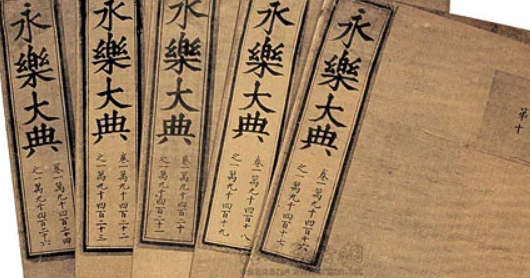 永樂大典
卷一萬九千四百二十四
之一萬九千四百二十六
永樂大典
卷一萬九千四百二十二
之一萬九千四百二十三
永樂大典
卷一萬九千四百二十
之一萬九千四百二十一
永樂大典
卷一萬九千四百十八
之一萬九千四百十九
永樂大典
卷一萬九千四百十六
之一萬九千四百十七
第十